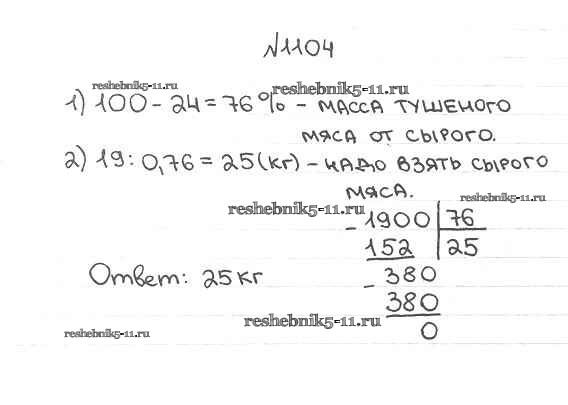 №1104
reshebnik5-11.ru
reshebnik5-11.ru
1) 100 - 24 = 76% - МАССА ТУШЕНОГО
МЯСА ОТ СЫРОГО.
2) 19 : 0,76 = 25 (кг) - НАДО ВЗЯТЬ СЫРОГО
МЯСА.
reshebnik5-11.ru
reshebnik5-11.ru
- 1900 | 76
152 | 25
Ответ: 25 кг
- 380
380
0
reshebnik5-11.ru
reshebnik5-11.ru